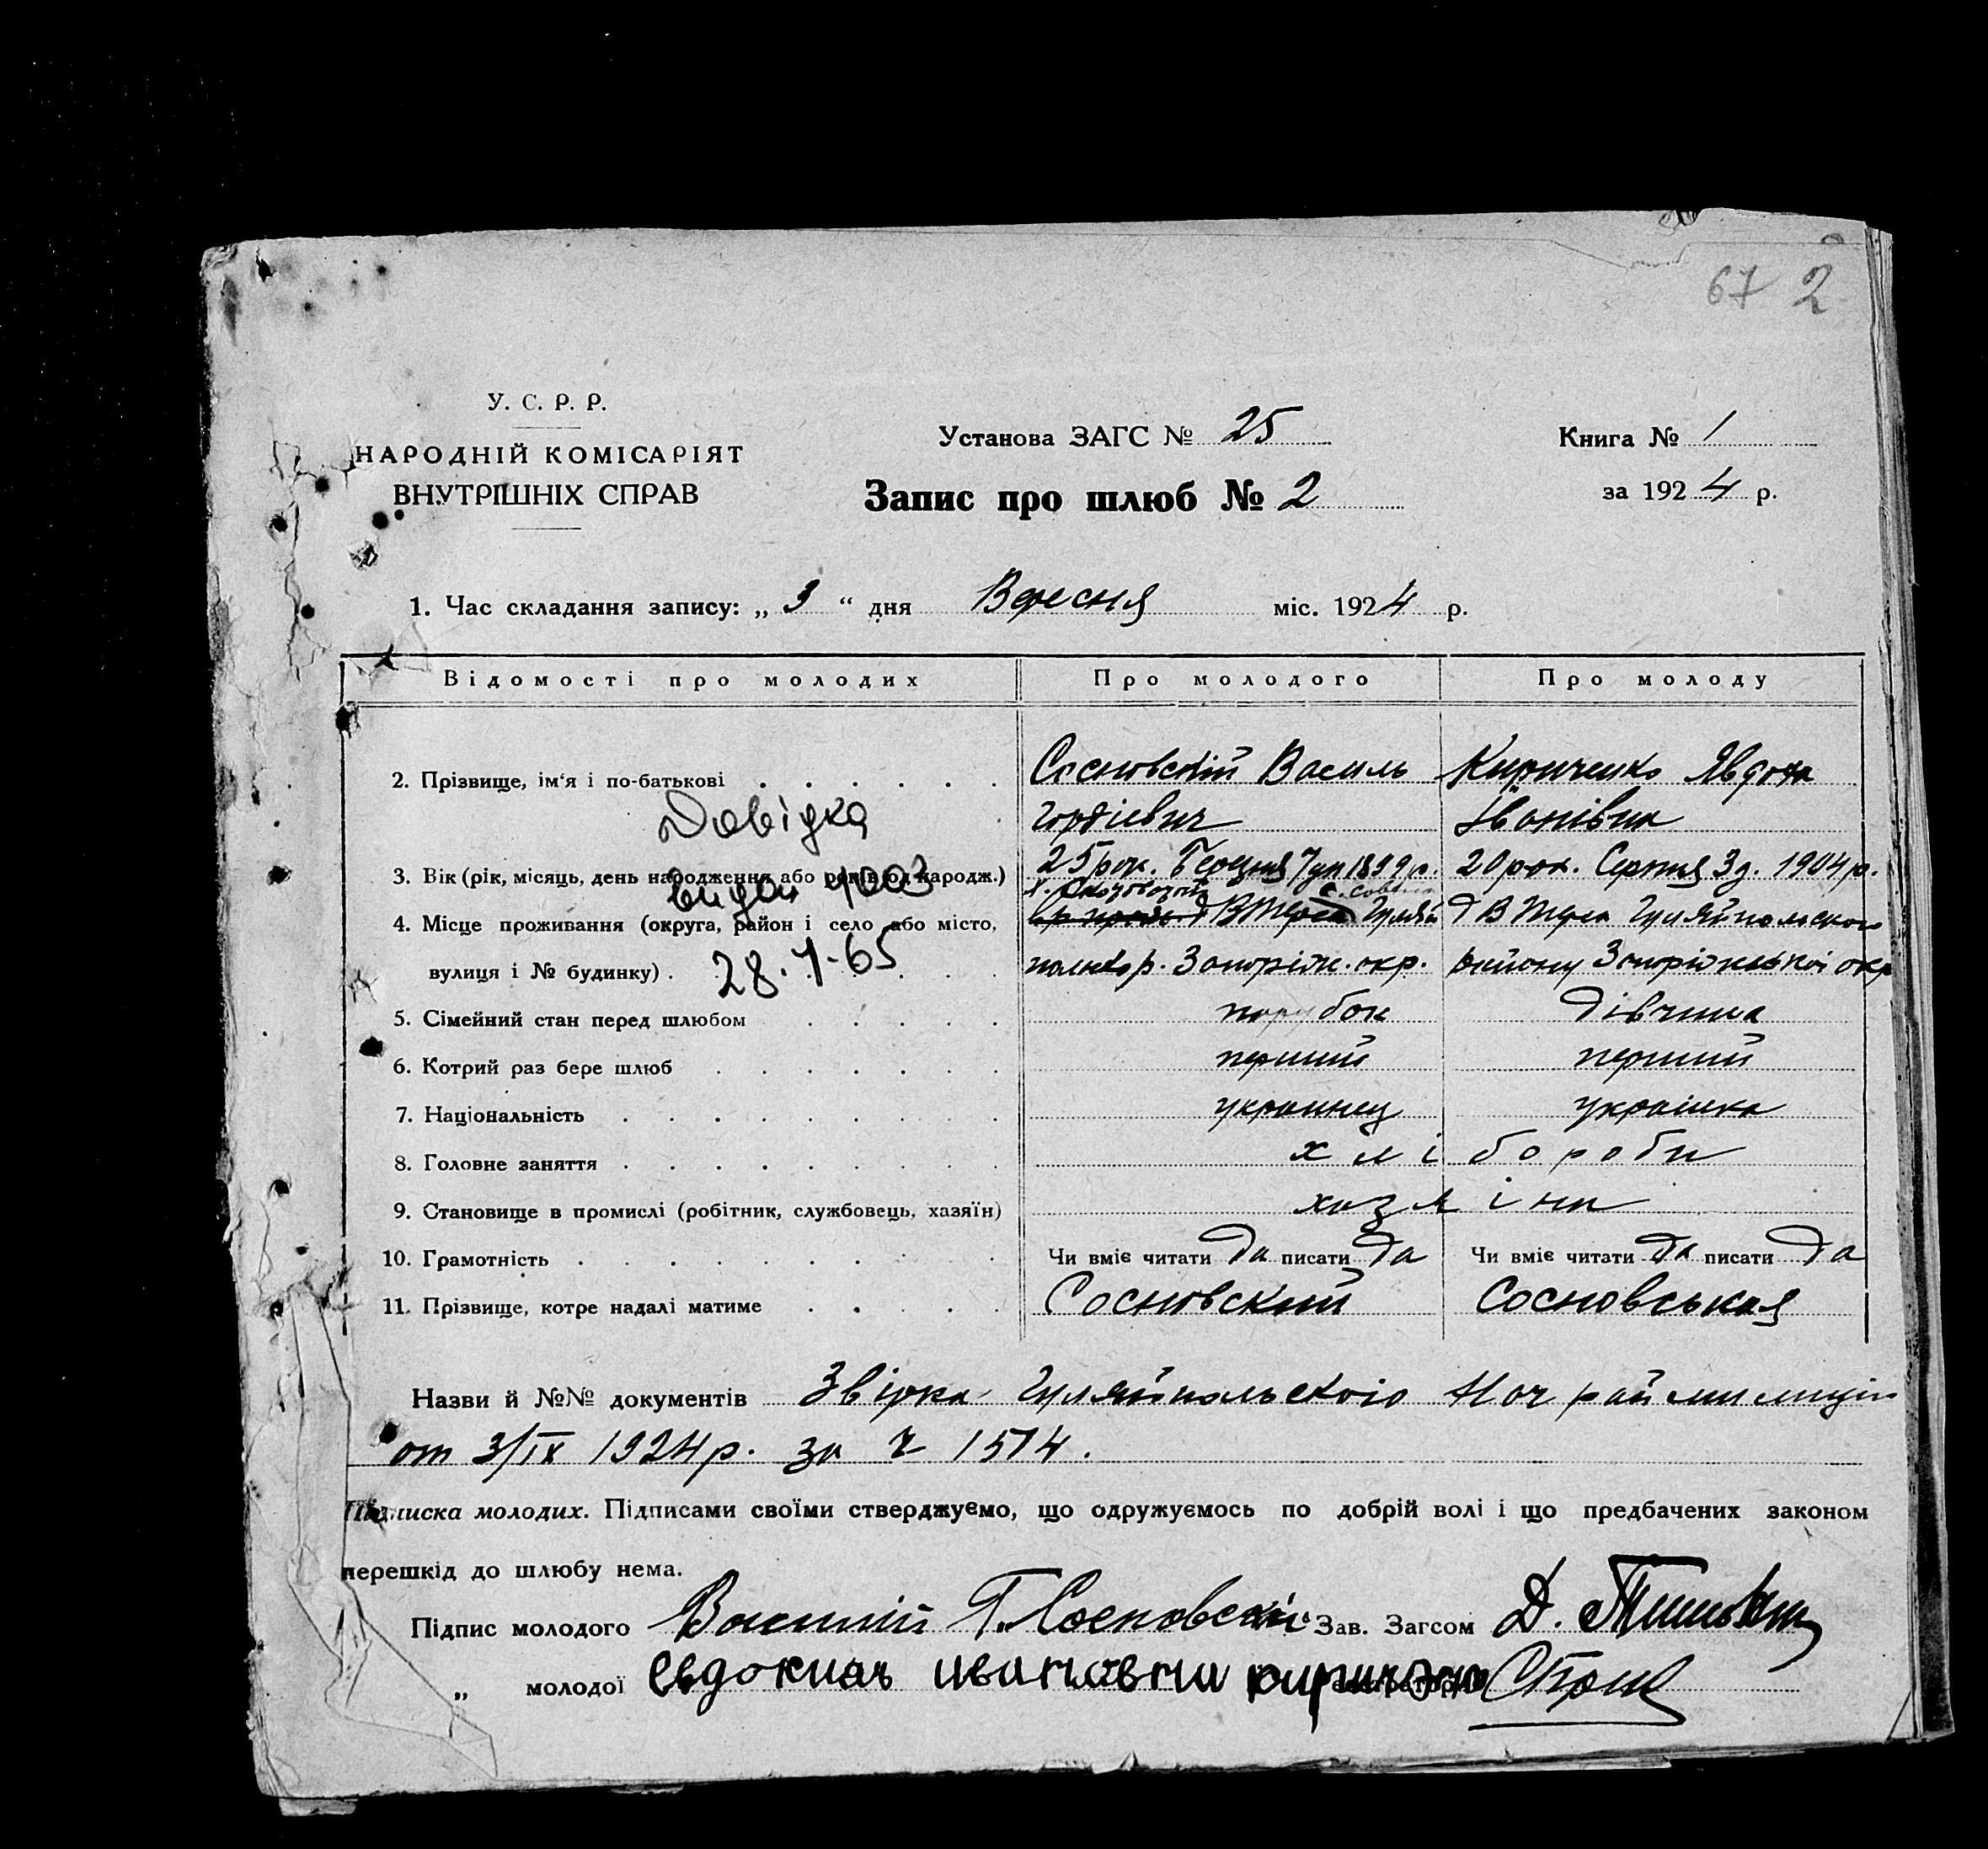 67 2
У. С. Р. Р.
НАРОДНІЙ КОМІСАРІЯТ
ВНУТРІШНІХ СПРАВ
Установа ЗАГС № 25
Книга № 1
Запис про шлюб № 2
за 1924 р.
1. Час складання запису: „ 3 “ дня Вересня міс. 1924 р.
Відомості про молодих Про молодого Про молоду
2. Прізвище, ім'я і по-батькові Сосновській Василь Кириченко Явдоха
Довідка Гордієвич Іванівна
3. Вік (рік, місяць, день народження або років од народж.) 25 рок. 7 дня 1899 р. 20 рок. Серпня 3 д. 1904 р.
видан
4. Місце проживання (округа, район і село або місто, Гуляй Гуляйпольского
вулиця і № будинку) польск. р. Запоріж. окр. району Запоріжської окр
28.
65
5. Сімейний стан перед шлюбом парубок дівчина
6. Котрий раз бере шлюб перший перший
7. Національність украинец украінка
8. Головне заняття хлібороби
9. Становище в промислі (робітник, службовець, хазяїн) хазяіни
10. Грамотність Чи вміє читати да писати да Чи вміє читати да писати да
11. Прізвище, котре надалі матиме Сосновский Сосновськая
Назви й №№ документів Звірка Гуляйпольского Нач раймилиціи
от 3/IX 1924 р. за ч 1574.
Підписка молодих. Підписами своїми стверджуємо, що одружуємось по добрій волі і що предбачених законом
перешкід до шлюбу нема.
Підпис молодого Василій Г. Сосновский Зав. Загсом Д.
„ молодої Евдокиач ивановна